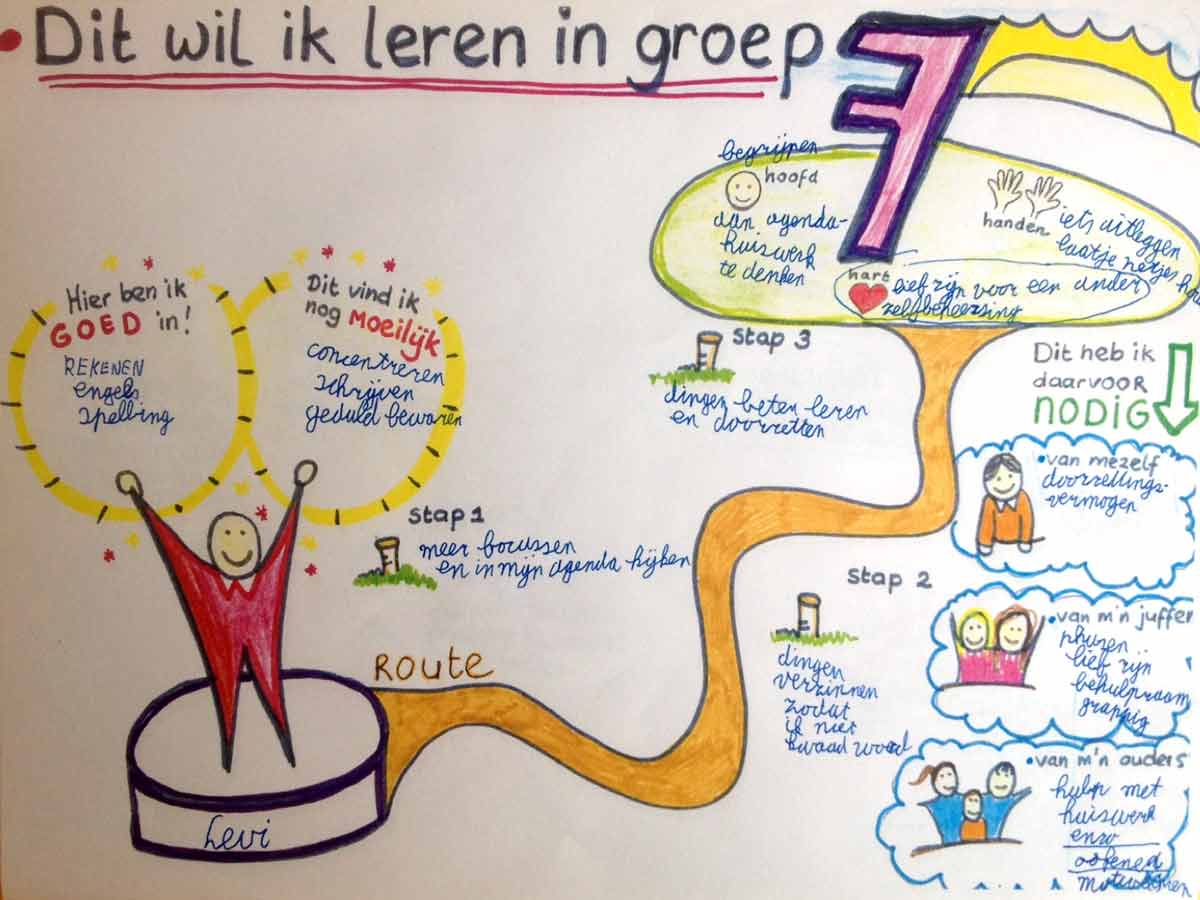 Dit wil ik leren in groep 7
begrijpen
hoofd
aan agenda-
huiswerk
te denken
handen
iets uitleggen
laatje netjes
hart
lief zijn voor een ander
zelfbeheersing
Hier ben ik
GOED in!
REKENEN
engels
spelling
Dit vind ik
nog MOEILIJK
concentreren
schrijven
geduld bewaren
stap 3
dingen beten leren
en doorzetten
Dit heb ik
daarvoor
NODIG
van mezelf
doorzettings-
vermogen
stap 1
meer focussen
en in mijn agenda kijken
stap 2
dingen
verzinnen
zodat
ik niet
kwaad word
van m'n juffen
lief zijn
behulpzaam
grappig
ROUTE
van m'n ouders
hulp met
huiswerk
enzo
oefenen
Levi